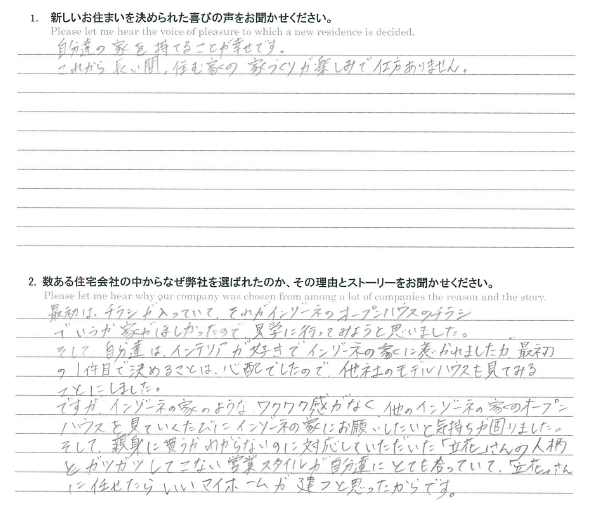 1. 新しいお住まいを決められた喜びの声をお聞かせください。
Please let me hear the voice of pleasure to which a new residence is decided.
自分達の家を持てることが幸せです。
これから長い間、住む家の家づくりが楽しみで仕方ありません。
2. 数ある住宅会社の中からなぜ弊社を選ばれたのか、その理由とストーリーをお聞かせください。
Please let me hear why our company was chosen from among a lot of companies the reason and the story.
最初は、チラシが入っていて、それがインゾーネのオープンハウスのチラシ
でいつか家がほしかったので見学に行ってみようと思いました。
そして自分達は、インテリアが好きでインゾーネの家に惹かれましたが、最初
の1件目で決めることは、心配でしたので、他社のモデルハウスも見てみる
ことにしました。
ですが、インゾーネの家のような、ワクワク感がなく、他のインゾーネの家のオープン
ハウスを見ていくたびにインゾーネの家にお願いしたいと気持ちが固りました。
そして、親身に買うかわからないのに対応していただいた「立花」さんの人柄
とガツガツしてこない営業スタイルが自分達にとても合っていて、「立花」さん
に任せたらいいマイホームが建つと思ったからです。